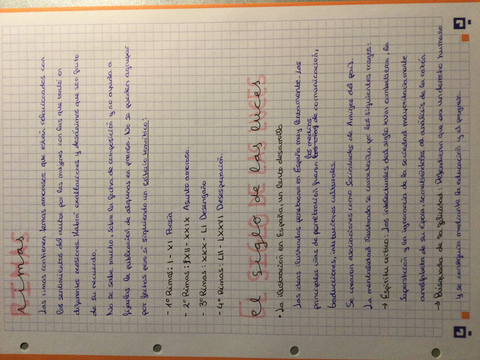 RIMAS
rimas
Las rimas contienen temas amorosos que están relacionados con
los sentimientos del autor por las mujeres con las que trató en
diferentes ocasiones. Habrá exaltaciones y desánimos que son fruto
de su recuerdo.
No se sabe mucho sobre la fecha de composición y no ayuda a
fijarlas la publicación de algunas en prensa. No se pueden agrupar
por fechas pero sí siguiendo un criterio temático:
- 1º Rimas: I - XI Poesía
- 2º Rimas: XII - XXIX Asunto amoroso.
- 3º Rimas: XXX - LI Desengaño
- 4º Rimas: LII - LXXVI Desesperación.
EL SIGLO DE LAS LUCES
el siglo de las luces
• La ilustración en España, un lento desarrollo
Las ideas ilustradas penetraron en España muy lentamente. Las
principales vías de penetración fueron los medios de comunicación,
traducciones, instituciones culturales.
Se crearon asociaciones como Sociedades de Amigos del país.
La mentalidad ilustrada se caracteriza por los siguientes rasgos:
→ Espíritu crítico: Los intelectuales del siglo XVIII combatieron la
superstición y la ignorancia de la sociedad mayoritariamente
analfabeta de su época, sometiéndolas al análisis de la razón
→ Búsqueda de la felicidad: Defendían que era un derecho humano
y se conseguía mediante la educación y el progreso.